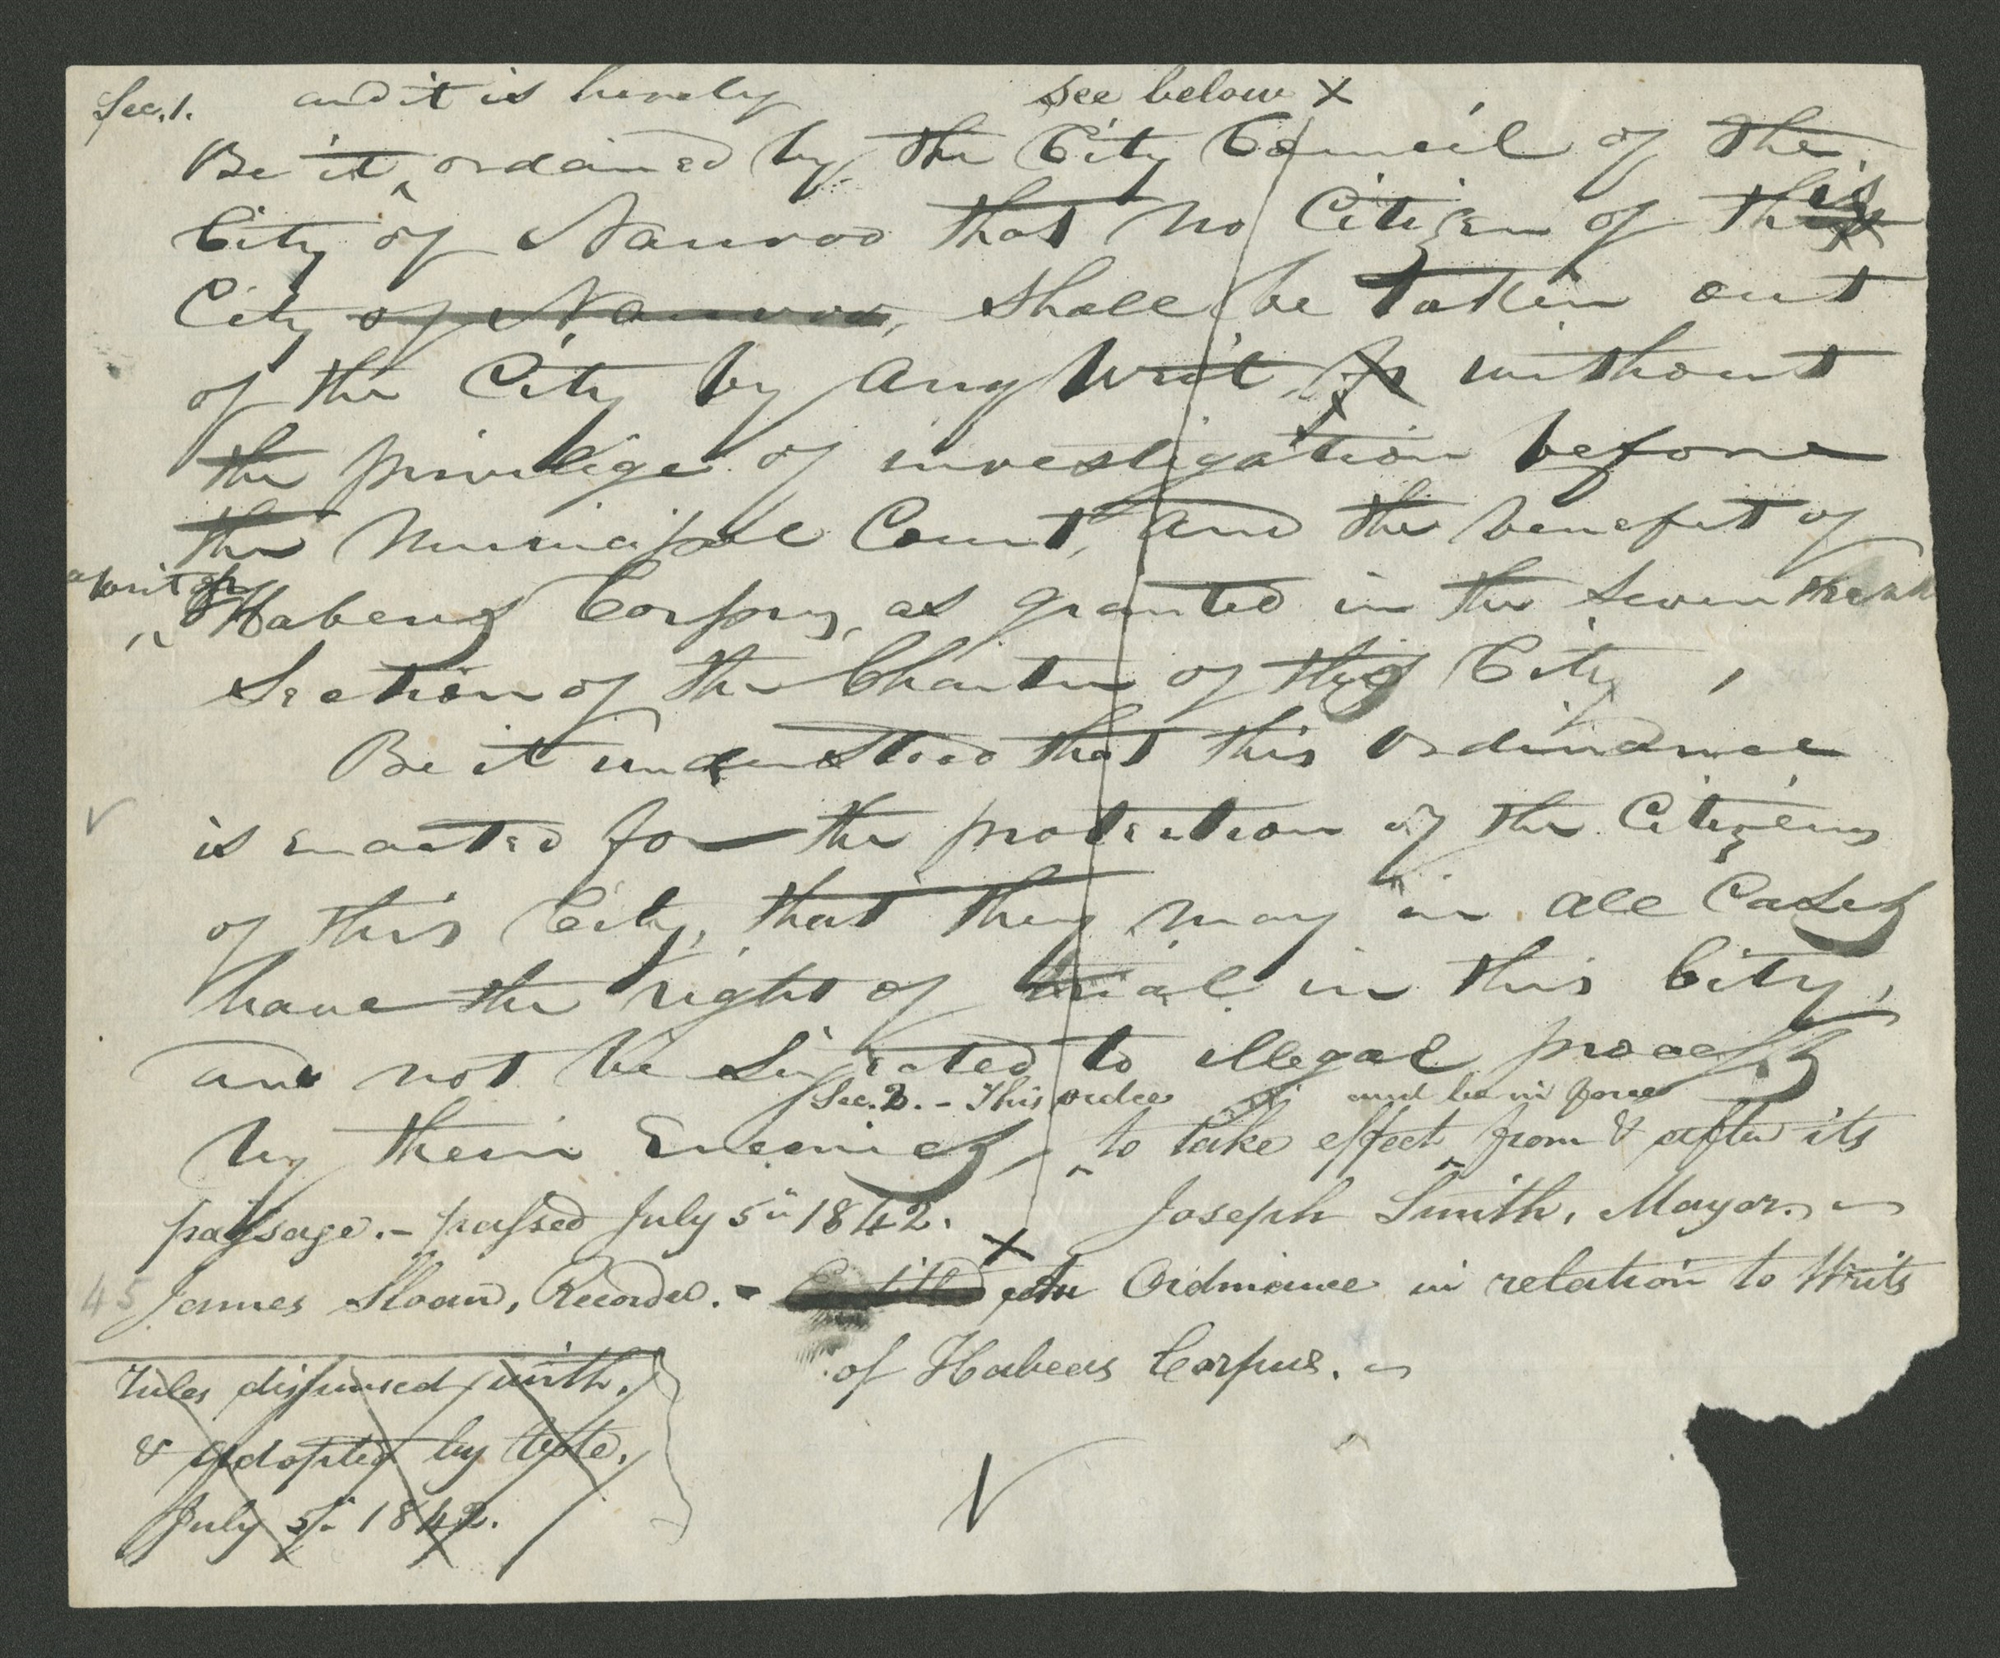 Sec. 1. and it is hereby see below X
Be it ordained by the City Council of the
City of Nauvoo that no Citizen of this
City of Nauvoo, shall be taken out
of the City by any Writ without
the privilege of investigation before
the Municipal Court, and the benefit of
a writ of
Habeus Corpus, as granted in the Seventeenth
Section of the Charter of this City,
Be it understood that this Ordinance
is enacted for the protection of the Citizens
of this City, that they may in all Cases
have the right of trial in this City,
and not be subjected to illegal process
Sec. 2. – This ordce and be in force
by their Enemies, to take effect from & after its
passage. – passed July 5th 1842. Joseph Smith, Mayor.
45 James Sloan, Recorder. – Entitled An Ordinance in relation to Writs
of Habeas Corpus.
rules dispensed with,
& adopted by Vote,
July 5th 1842.